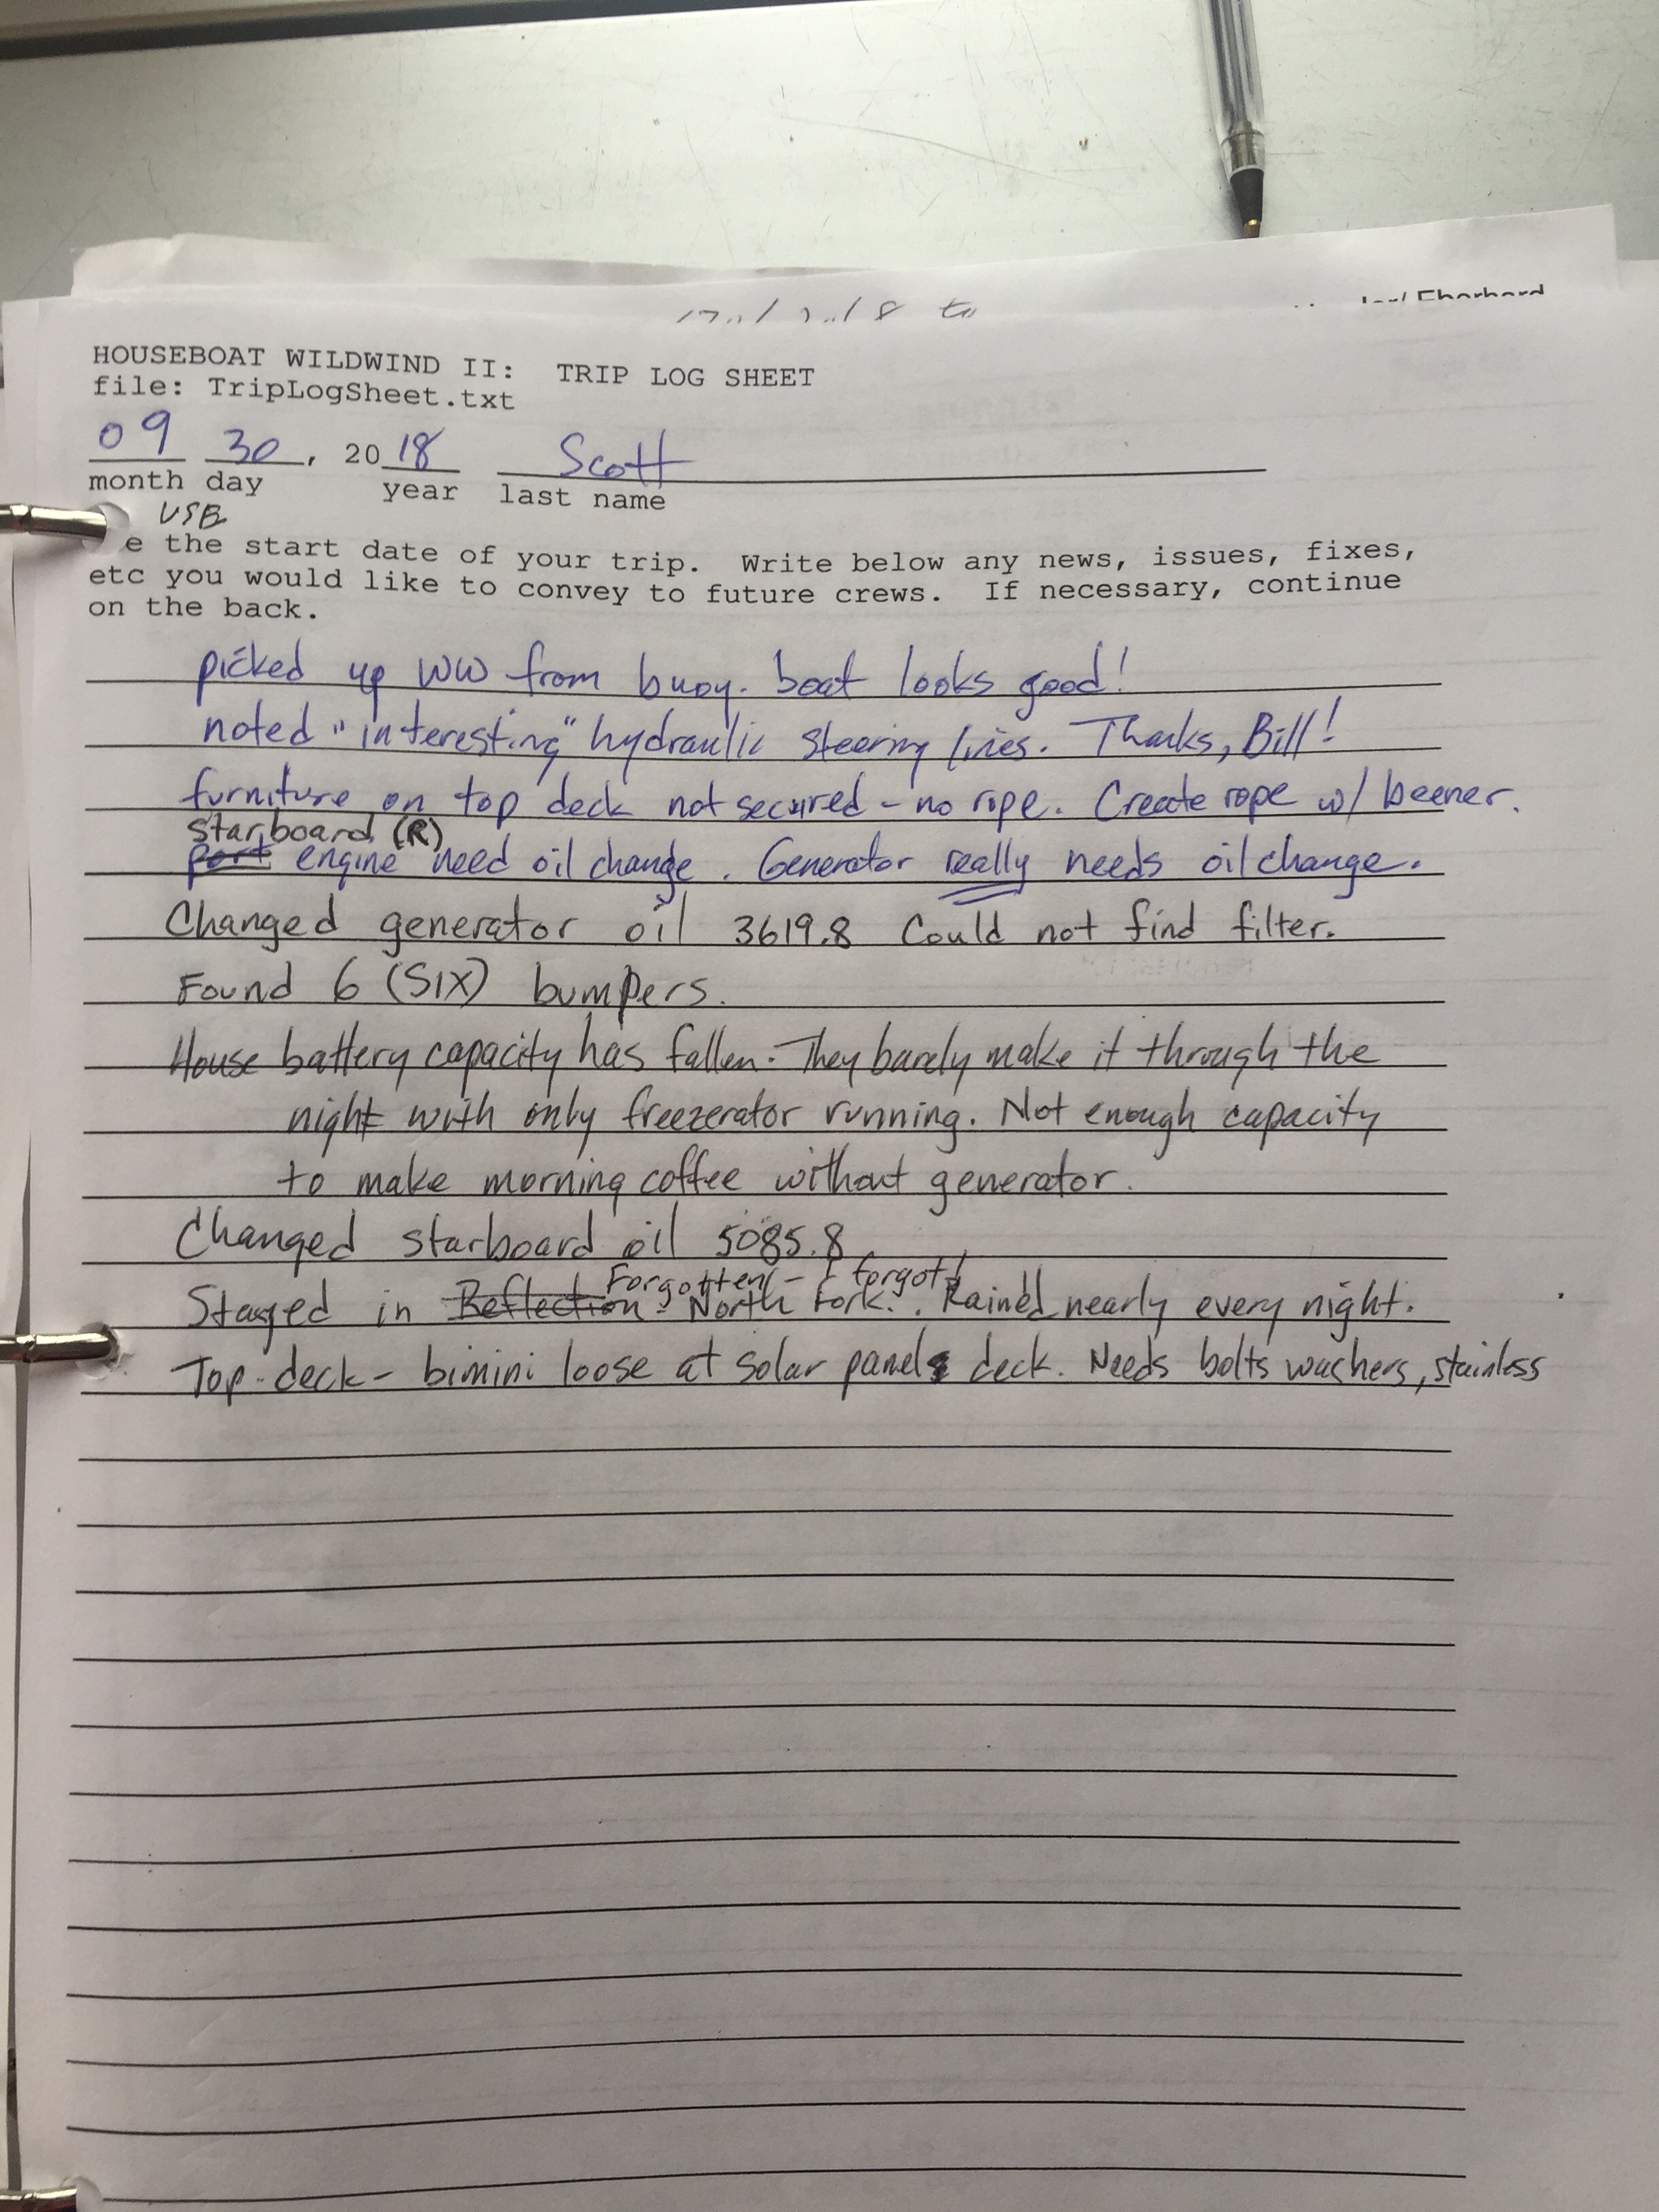 Eberhard
HOUSEBOAT WILDWIND II: TRIP LOG SHEET
file: TripLogSheet.txt
09 30, 2018 Scott
month day year last name
USB
e the start date of your trip. Write below any news, issues, fixes,
etc you would like to convey to future crews. If necessary, continue
on the back.
picked up WW from buoy. boat looks good!
noted "interesting" hydraulic steering lines. Thanks, Bill!
furniture on top deck not secured - no rope. Create rope w/ beener.
Starboard (R)
port engine need oil change. Generator really needs oil change.
Changed generator oil 3619.8 Could not find filter.
Found 6 (SIX) bumpers.
House battery capacity has fallen. They barely make it through the
night with only freezerator running. Not enough capacity
to make morning coffee without generator.
Changed starboard oil 5085.8
Forgotten - I forgot!
Stayed in Reflection - North Fork. Rained nearly every night.
Top deck - bimini loose at solar panel deck. Needs bolts washers, stainless